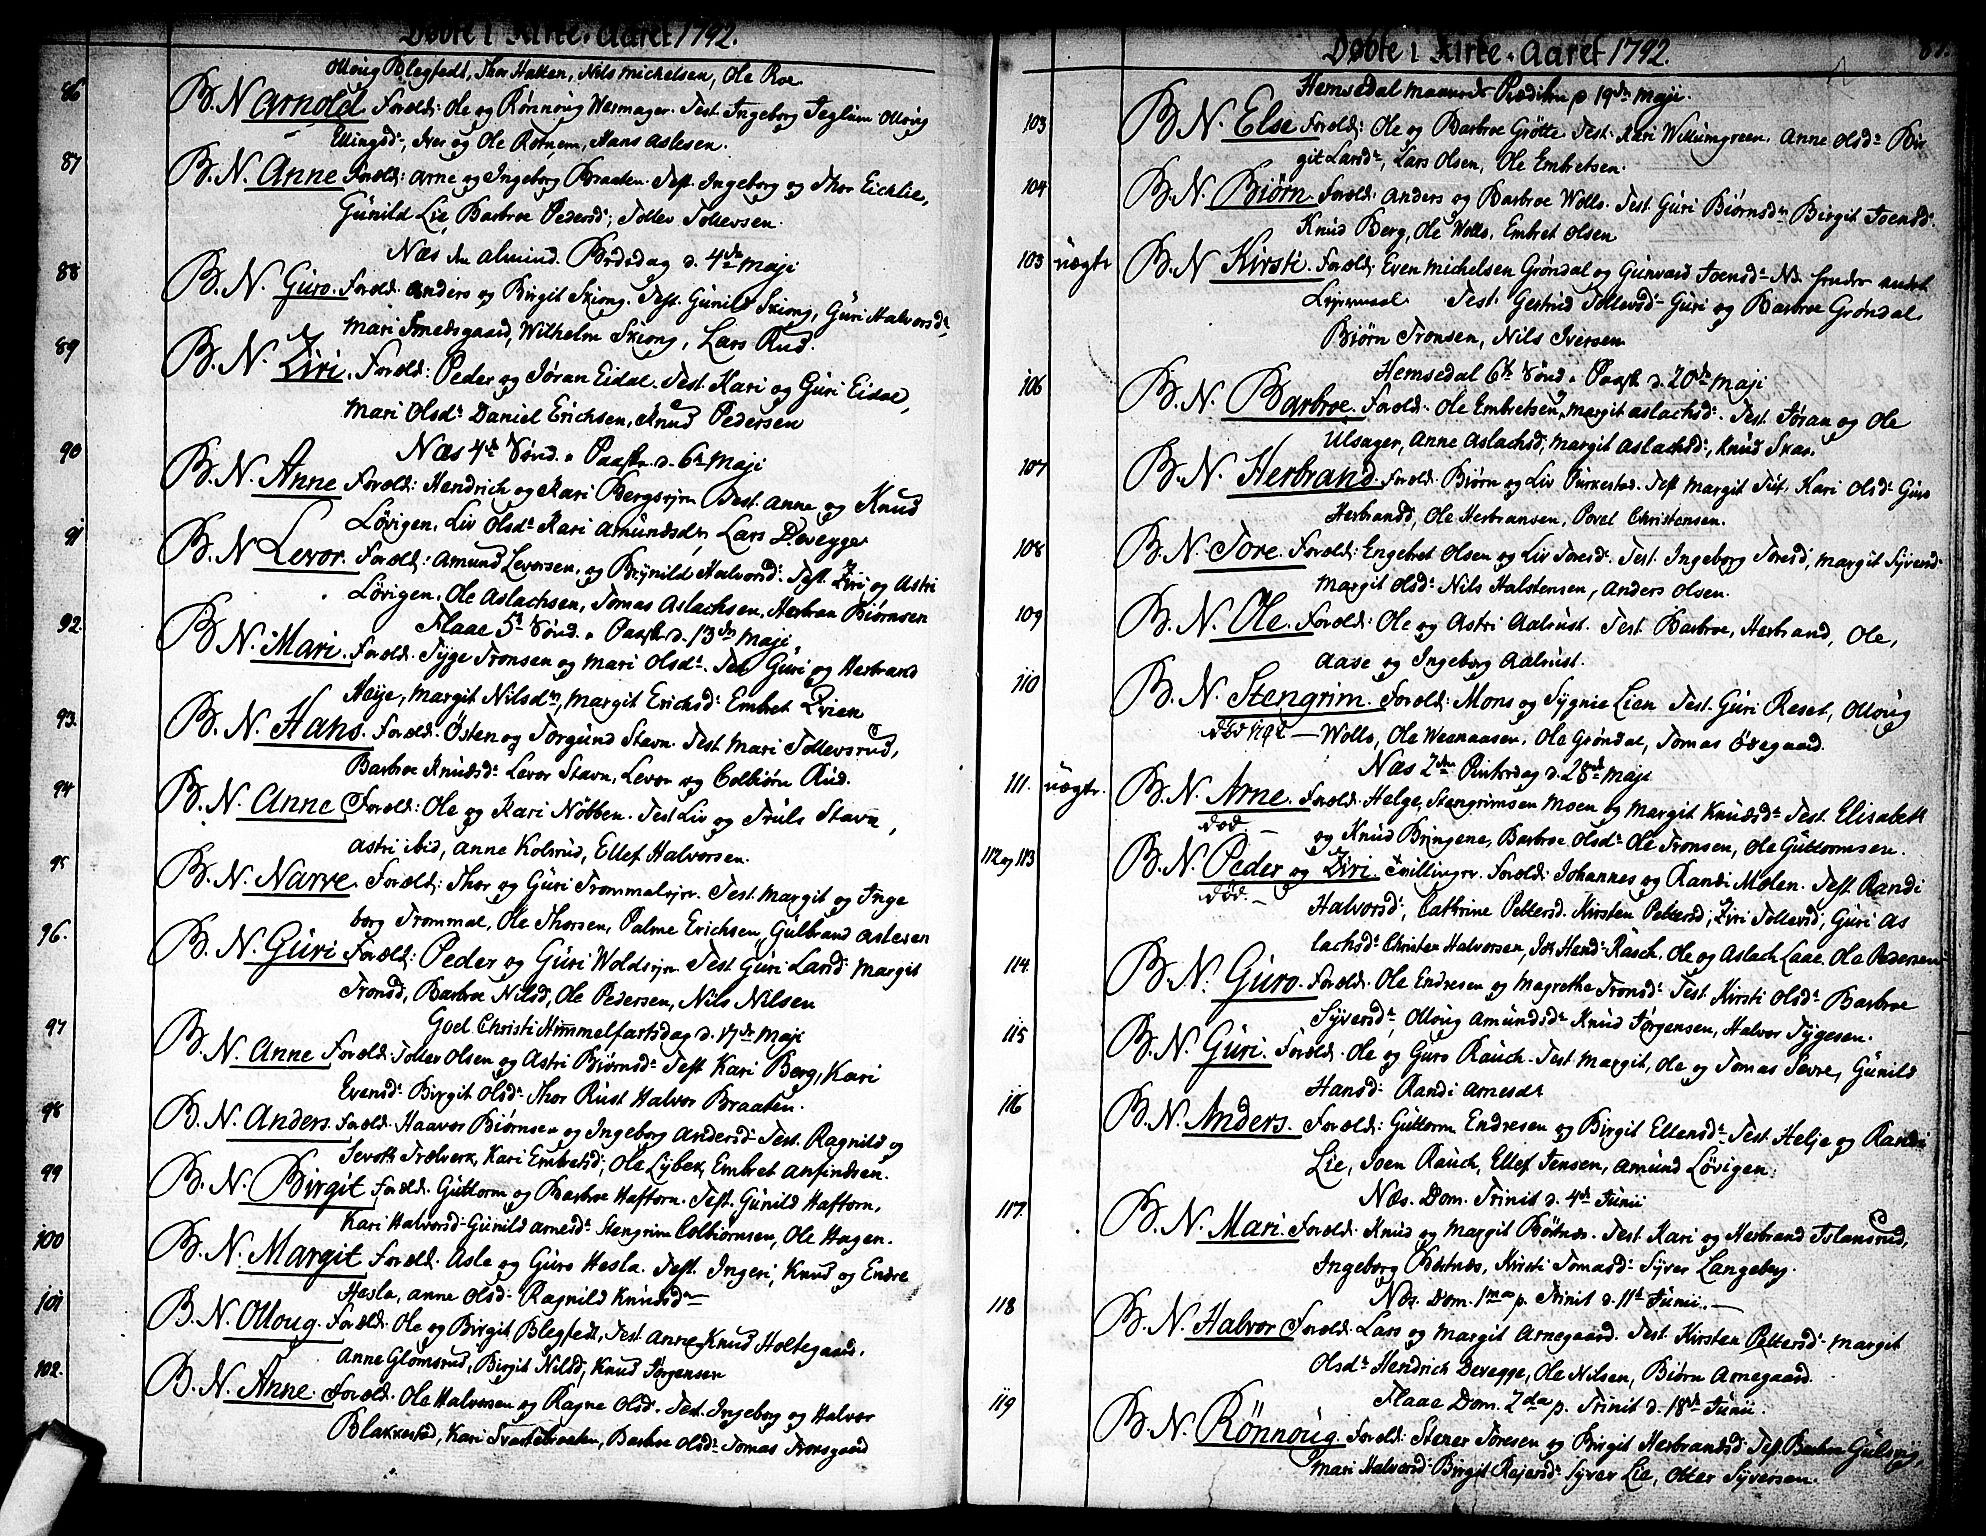 Døbte i Kirke. Aaret 1792.
Olloug Blegstedt, Thor Hakken, Nils Michelsen, Ole Roe
86 B. N. Arnold Foræld: Ole og Rönnoug Wermager. Test. Ingeborg Teglum Olloug
Ellingsd:, Iver og Ole Rotnem, Hans Aslesen.
87 B. N. Anne Foræld: Arne og Ingeborg Braaten. Test. Ingeborg og Thor Eicklie,
Gunild Lie, Barbroe Pedersd:, Tollev Tollevsen.
Næs den almind. Bededag d. 4de Maji
88 B. N. Guro. Foræld: Anders og Birgit Skiong. Test. Gunild Skiong, Guri Halvorsd:
Mari Smedsgaard, Wilhelm Skiong, Lars Rud.
89 B. N. Ziri. Foræld: Peder og Jöran Eidal. Test. Kari og Guri Eidal,
Mari Olsd: Daniel Erichsen, Knud Pedersen
Næs 4de Sönd. p. Paaske d. 6te Maji
90 B. N. Anne Foræld: Hendrich og Kari Bergsejen Test. Anne og Knud
Lövigen, Liv Olsd: Kari Amundsd:, Lars Devegge
91 B. N. Levor. Foræld: Amund Levorsen, og Brynild Halvorsd: Test. Ziri og Astri
Lövigen, Ole Aslachsen, Tomas Aslachsen, Herbran Biörnsen
Flaae 5te Sönd. p. Paaske d. 13de Maji
92. B. N. Mari. Foræld: Tyge Tronsen og Mari Olsd: Test Guri og Herbrand
Heije, Margit Nilsd:, Margit Erichsd: Embret Qvien
93. B. N. Hans. Foræld: Östen og Torgund Stavn. Test. Mari Tollevsrud,
Barbroe Knudsd: Levor Stavn, Levor og Colbiörn Rud.
94 B. N. Anne Foræld: Ole og Kari Nöbben. Test. Liv og Truls Stavn,
Astri ibid, Anne Kolsrud, Ellef Halvorsen.
95 B. N. Narve. Foræld: Thor og Guri Trommalsejen. Test. Margit og Inge
borg Trommal, Ole Thorsen, Palme Erichsen, Gulbrand Aslesen
96. B. N. Guri Foræld: Peder og Guri Woldsejen Test Guri Larsd: Margit
Tronsd, Barbroe Nilsd, Ole Pedersen, Nils Nilsen
Goel Christi Himmelfartsdag d. 17de Maji
97 B. N. Anne Foræld: Tollev Olsen og Astri Biörnsd: Test Kari Berg, Kari
Evensd: Birgit Olsd: Thor Rust Halvor Braaten.
98 B. N. Anders. Foræld: Haavor Biörnsen og Ingeborg Andersd: Test. Ragnild og
Tælverk, Kari Embretsd:, Ole Lybek, Embret Anfindsen.
99 B. N. Birgit Foræld: Guttorm og Barbroe Haftorn. Test. Gunild Haftorn,
Kari Halvorsd: Gunild Arnesd: Stengrim Colbiörnsen, Ole Hagen.
100 B. N. Margit Foræld: Asle og Guro Hesla. Test. Ingeri, Knud og Endre
Hesla, Anne Olsd: Ragnild Knudsd:
101 B. N. Olloug. Foræld: Ole og Birgit Blegstedt, Test. Anne, Knud Holtegaard,
Anne Glomsrud, Birgit Nilsd, Knud Jörgensen
102. B. N. Anne Foræld: Ole Halvorsen og Ragne Olsd. Test. Ingeborg og Halvor
Blakkestad, Kari Svartebraaten, Barbroe Olsd: Tomas Tronsgaard
Døbte i Kirke. Aaret 1792. 87.
Hemsedal Prædiken d 19de Maji.
103 B. N. Else Foræld: Ole og Barbroe Grötte Test. Kari Willumgreen, Anne Olsd: Bir
git Larsd:, Lars Olsen, Ole Embretsen.
104 B. N. Biörn. Foræld: Anders og Barbroe Wollo. Test. Guri Biörnsd: Birgit Joensd:
Knud Berg, Ole Wollo, Embret Olsen
103 uægte B. N. Kirsti. Foræld: Even Michelsen Gröndal og Gunvord Joensd: NB. andet
Leiermaal. Test. Gertrud Tollevsd: Guri og Barbroe Gröndal,
Biörn Tronsen, Nils Iversen
Hemsedal 6te Sönd. p. Paaske d. 20de Maji
106 B. N. Barbroe. Foræld: Ole Embretsen, Margit Aslachsd: Test. Jöran og Ole
Ulsager, Anne Aslachsd, Margit Aslachsd:, Knud Skar.
107 B. N. Herbrand. Foræld: Biörn og Liv Purkestad. Test Margit Tuf, Kari Olsd: Guro
Herbrandsd, Ole Herbransen, Povel Christensen.
108 B. N. Tore. Foræld: Engebret Olsen og Liv Toresd: Test. Ingeborg Toresd, Margit Syversd:
Margit Olsd: Nils Halstensen, Anders Olsen.
109 B. N. Ole. Foræld: Ole og Astri Aalrust. Test. Barbroe, Herbrand, Ole,
Aase og Ingeborg Aalrust.
110 B. N. Stengrim. Foræld: Mons og Sygnie Lien Test. Guri Reset, Olloug
död 1792 — Wollo, Ole Weenaasen, Ole Gröndal, Tomas Ödegaard.
Næs 2den Pintsedag d. 28de Maji
111. uægte. B. N. Arne. Foræld: Helge Stengrimsen Moen og Margit Knudsd: Test. Elisabeth
död. — og Knud Bringene, Barbroe Olsd: Ole Tronsen, Ole Guttormsen.
112 og 113 B. N. Peder og Ziri. Tvillinger. Foræld: Johannes og Randi Molen. Test. Randi
död. — Halvorsd:, Cathrine Pettersd. Kirsten Pettersd, Ziri Tollevsd, Guri As
lachsd: Christen Halvorsen, Hend: Rasch, Ole og Aslach Laae, Ole Pedersen
114. B. N. Guro. Foræld: Ole Endresen og Magrethe Tronsd: Test. Kirsti Olsd: Barbroe
Syversd:, Olloug Amundsd: Knud Jörgensen, Halvor Tygesen.
115 B. N. Guri. Foræld: Ole og Guro Rauch. Test. Margit, Ole og Tomas Sevre, Gunild
Hansd: Randi Arnesd:
116 B. N. Anders. Foræld: Guttorm Endresen og Birgit Ellensd: Test. Helje og Randi
Lie, Joen Rauch, Ellef Jensen, Amund Lövigen:
Næs. Dom. Trinit d. 4de Junii
117. B. N. Mari. Foræld: Knud og Margit Börtnæs. Test. Kari og Herbrand Islandsrud,
Ingeborg Börtnæs, Kirsti Tomasd: Syver Langeberg.
Næs. Dom. 1ma p. Trinit d. 11te Junii. —
118 B. N. Halvor Foræld: Lars og Margit Arnegaard. Test. Kirsten Pettersd: Margit
Olsd: Hendrich Devegge, Ole Nilsen, Biörn Arnegaard.
Flaae Dom. 2da p. Trinit d. 18de Junii.
119 B. N. Rönnoug. Foræld: Stener Toresen og Birgit Herbrandsd: Test. Barbroe Gulsvig,
Mari Halvorsd: Birgit Rejersd: Syver Lie, Otter Syversen.